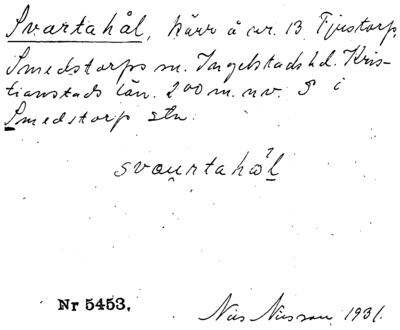 Svartahål, kärr å nr. 13 Tjustorp,
Smedstorps sn. Ingelstads hd. Kris-
tianstads län. 200 m. nv. S i
Smedstorp stn.
svaurtahål
Nr 5453.
Nils Nilsson 1931.